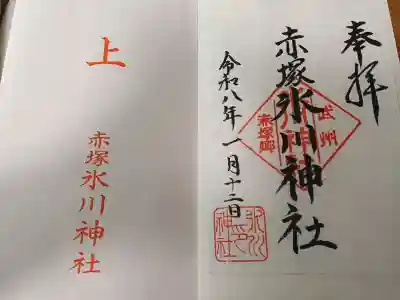 奉拝
赤塚氷川神社
令和八年一月十二日
武州
赤塚郷
上
赤塚
氷川神社